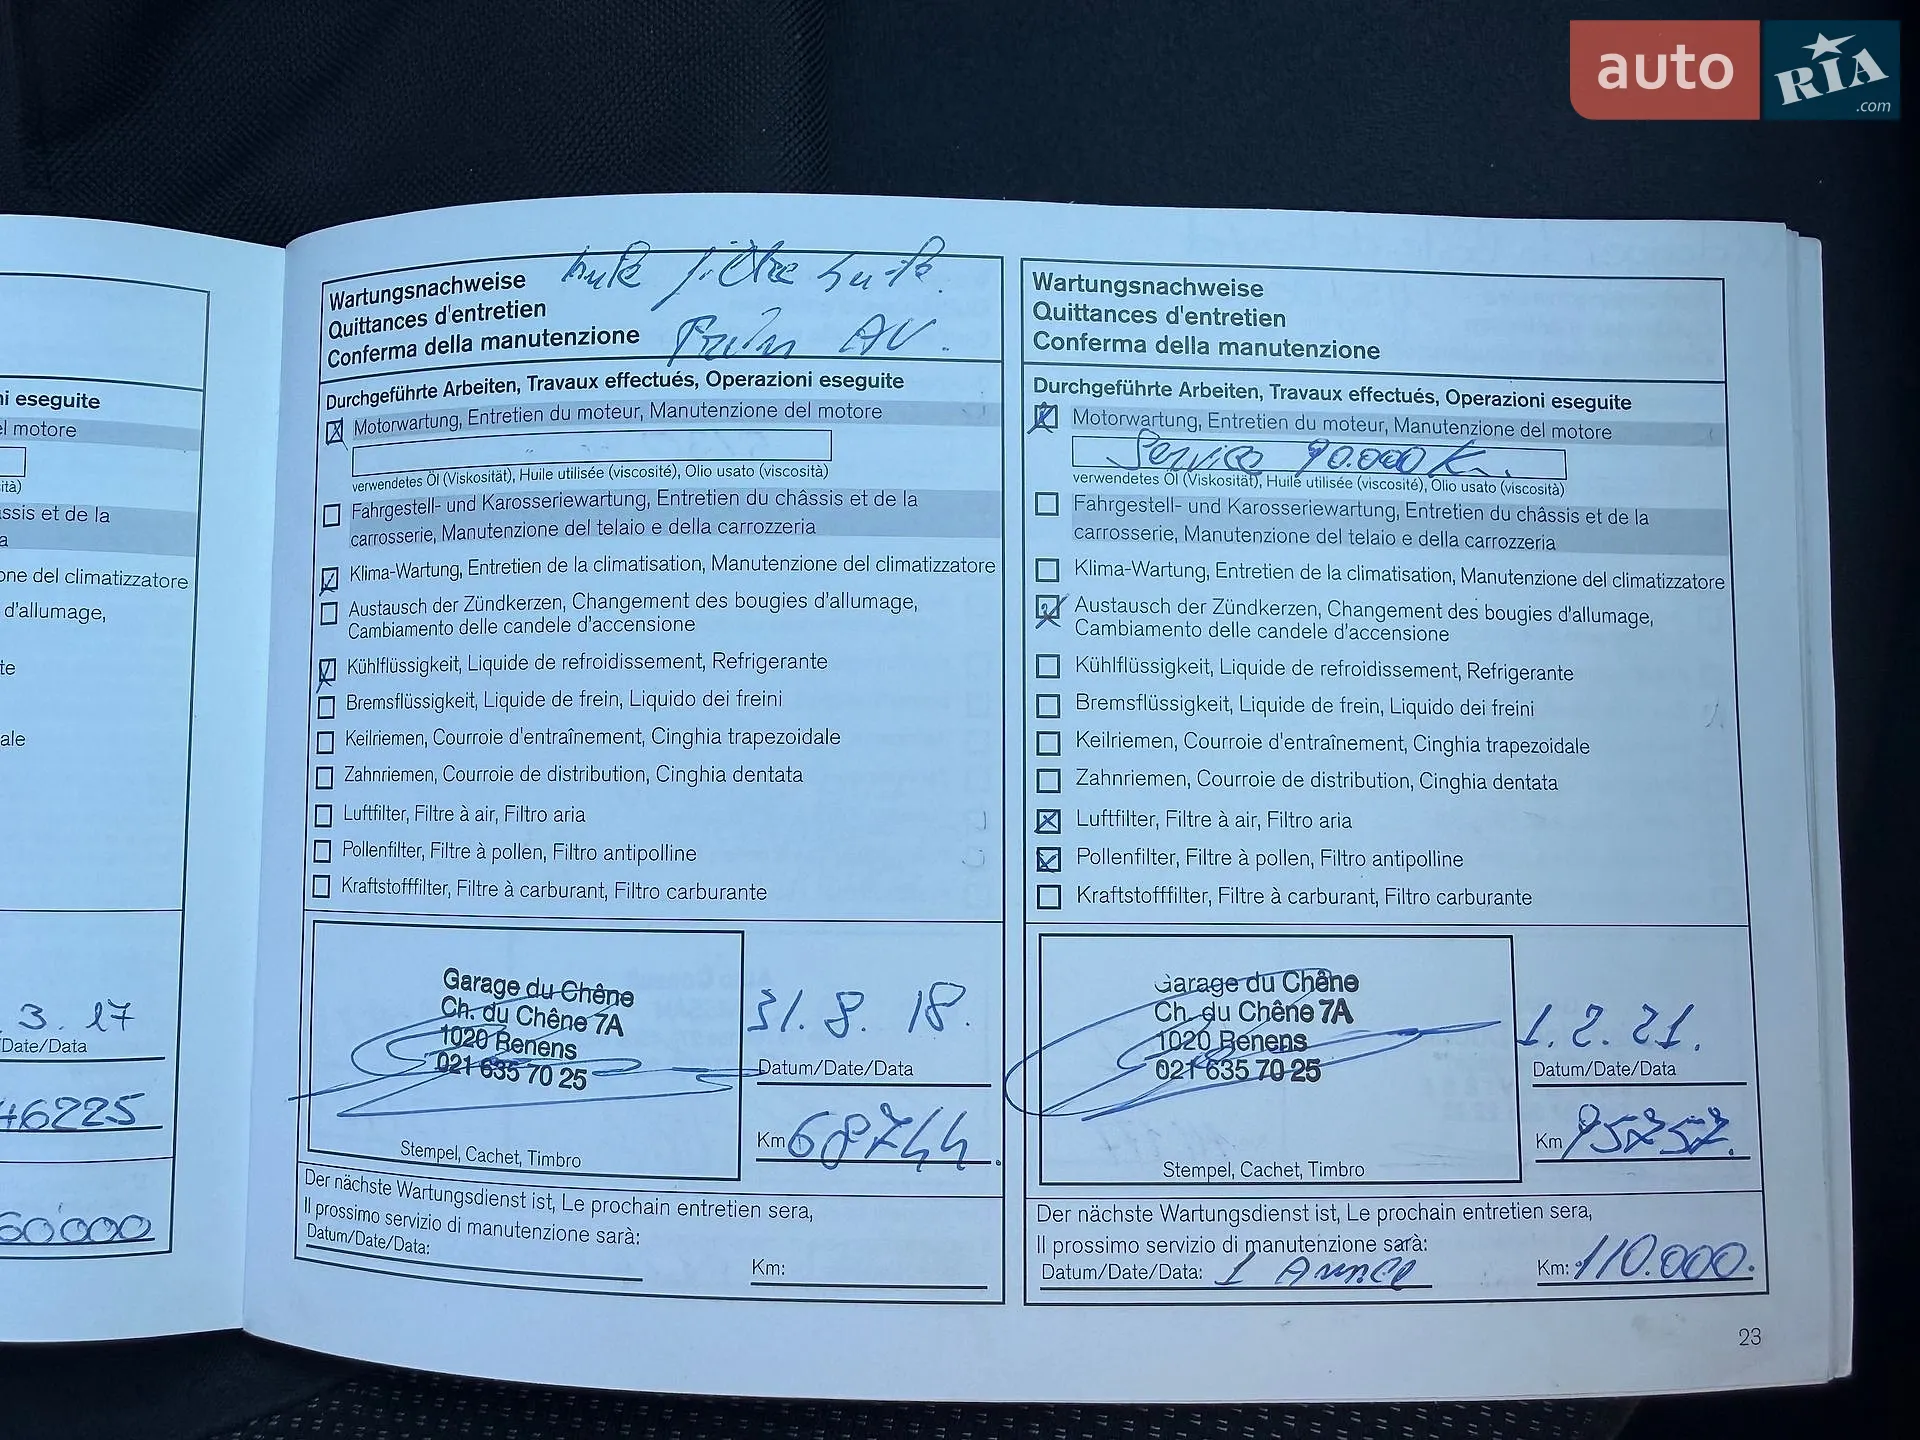 auto
RIA
.com
ni eseguite
el motore
ità)
ssis et de la
a
one del climatizzatore
d'allumage,
te
ale
3. 17
/Date/Data
46225
60000
Wartungsnachweise
Quittances d'entretien
Conferma della manutenzione
filtre huile.
AV.
Durchgeführte Arbeiten, Travaux effectués, Operazioni eseguite
Motorwartung, Entretien du moteur, Manutenzione del motore
verwendetes Öl (Viskosität), Huile utilisée (viscosité), Olio usato (viscosità)
Fahrgestell- und Karosseriewartung, Entretien du châssis et de la
carrosserie, Manutenzione del telaio e della carrozzeria
Klima-Wartung, Entretien de la climatisation, Manutenzione del climatizzatore
Austausch der Zündkerzen, Changement des bougies d'allumage,
Cambiamento delle candele d'accensione
Kühlflüssigkeit, Liquide de refroidissement, Refrigerante
Bremsflüssigkeit, Liquide de frein, Liquido dei freini
Keilriemen, Courroie d'entraînement, Cinghia trapezoidale
Zahnriemen, Courroie de distribution, Cinghia dentata
Luftfilter, Filtre à air, Filtro aria
Pollenfilter, Filtre à pollen, Filtro antipolline
Kraftstofffilter, Filtre à carburant, Filtro carburante
Garage du Chêne
Ch. du Chêne 7A
1020 Renens
021 635 70 25
Stempel, Cachet, Timbro
31. 8. 18.
Datum/Date/Data
Km 68744.
Der nächste Wartungsdienst ist, Le prochain entretien sera,
Il prossimo servizio di manutenzione sarà:
Datum/Date/Data:
Km:
Wartungsnachweise
Quittances d'entretien
Conferma della manutenzione
Durchgeführte Arbeiten, Travaux effectués, Operazioni eseguite
Motorwartung, Entretien du moteur, Manutenzione del motore
Service 90.000 Km.
verwendetes Öl (Viskosität), Huile utilisée (viscosité), Olio usato (viscosità)
Fahrgestell- und Karosseriewartung, Entretien du châssis et de la
carrosserie, Manutenzione del telaio e della carrozzeria
Klima-Wartung, Entretien de la climatisation, Manutenzione del climatizzatore
Austausch der Zündkerzen, Changement des bougies d'allumage,
Cambiamento delle candele d'accensione
Kühlflüssigkeit, Liquide de refroidissement, Refrigerante
Bremsflüssigkeit, Liquide de frein, Liquido dei freini
Keilriemen, Courroie d'entraînement, Cinghia trapezoidale
Zahnriemen, Courroie de distribution, Cinghia dentata
Luftfilter, Filtre à air, Filtro aria
Pollenfilter, Filtre à pollen, Filtro antipolline
Kraftstofffilter, Filtre à carburant, Filtro carburante
Garage du Chêne
Ch. du Chêne 7A
1020 Renens
021 635 70 25
Stempel, Cachet, Timbro
1. 2. 21.
Datum/Date/Data
Km 95757.
Der nächste Wartungsdienst ist, Le prochain entretien sera,
Il prossimo servizio di manutenzione sarà:
Datum/Date/Data: 1 Année
Km: 110.000.
23